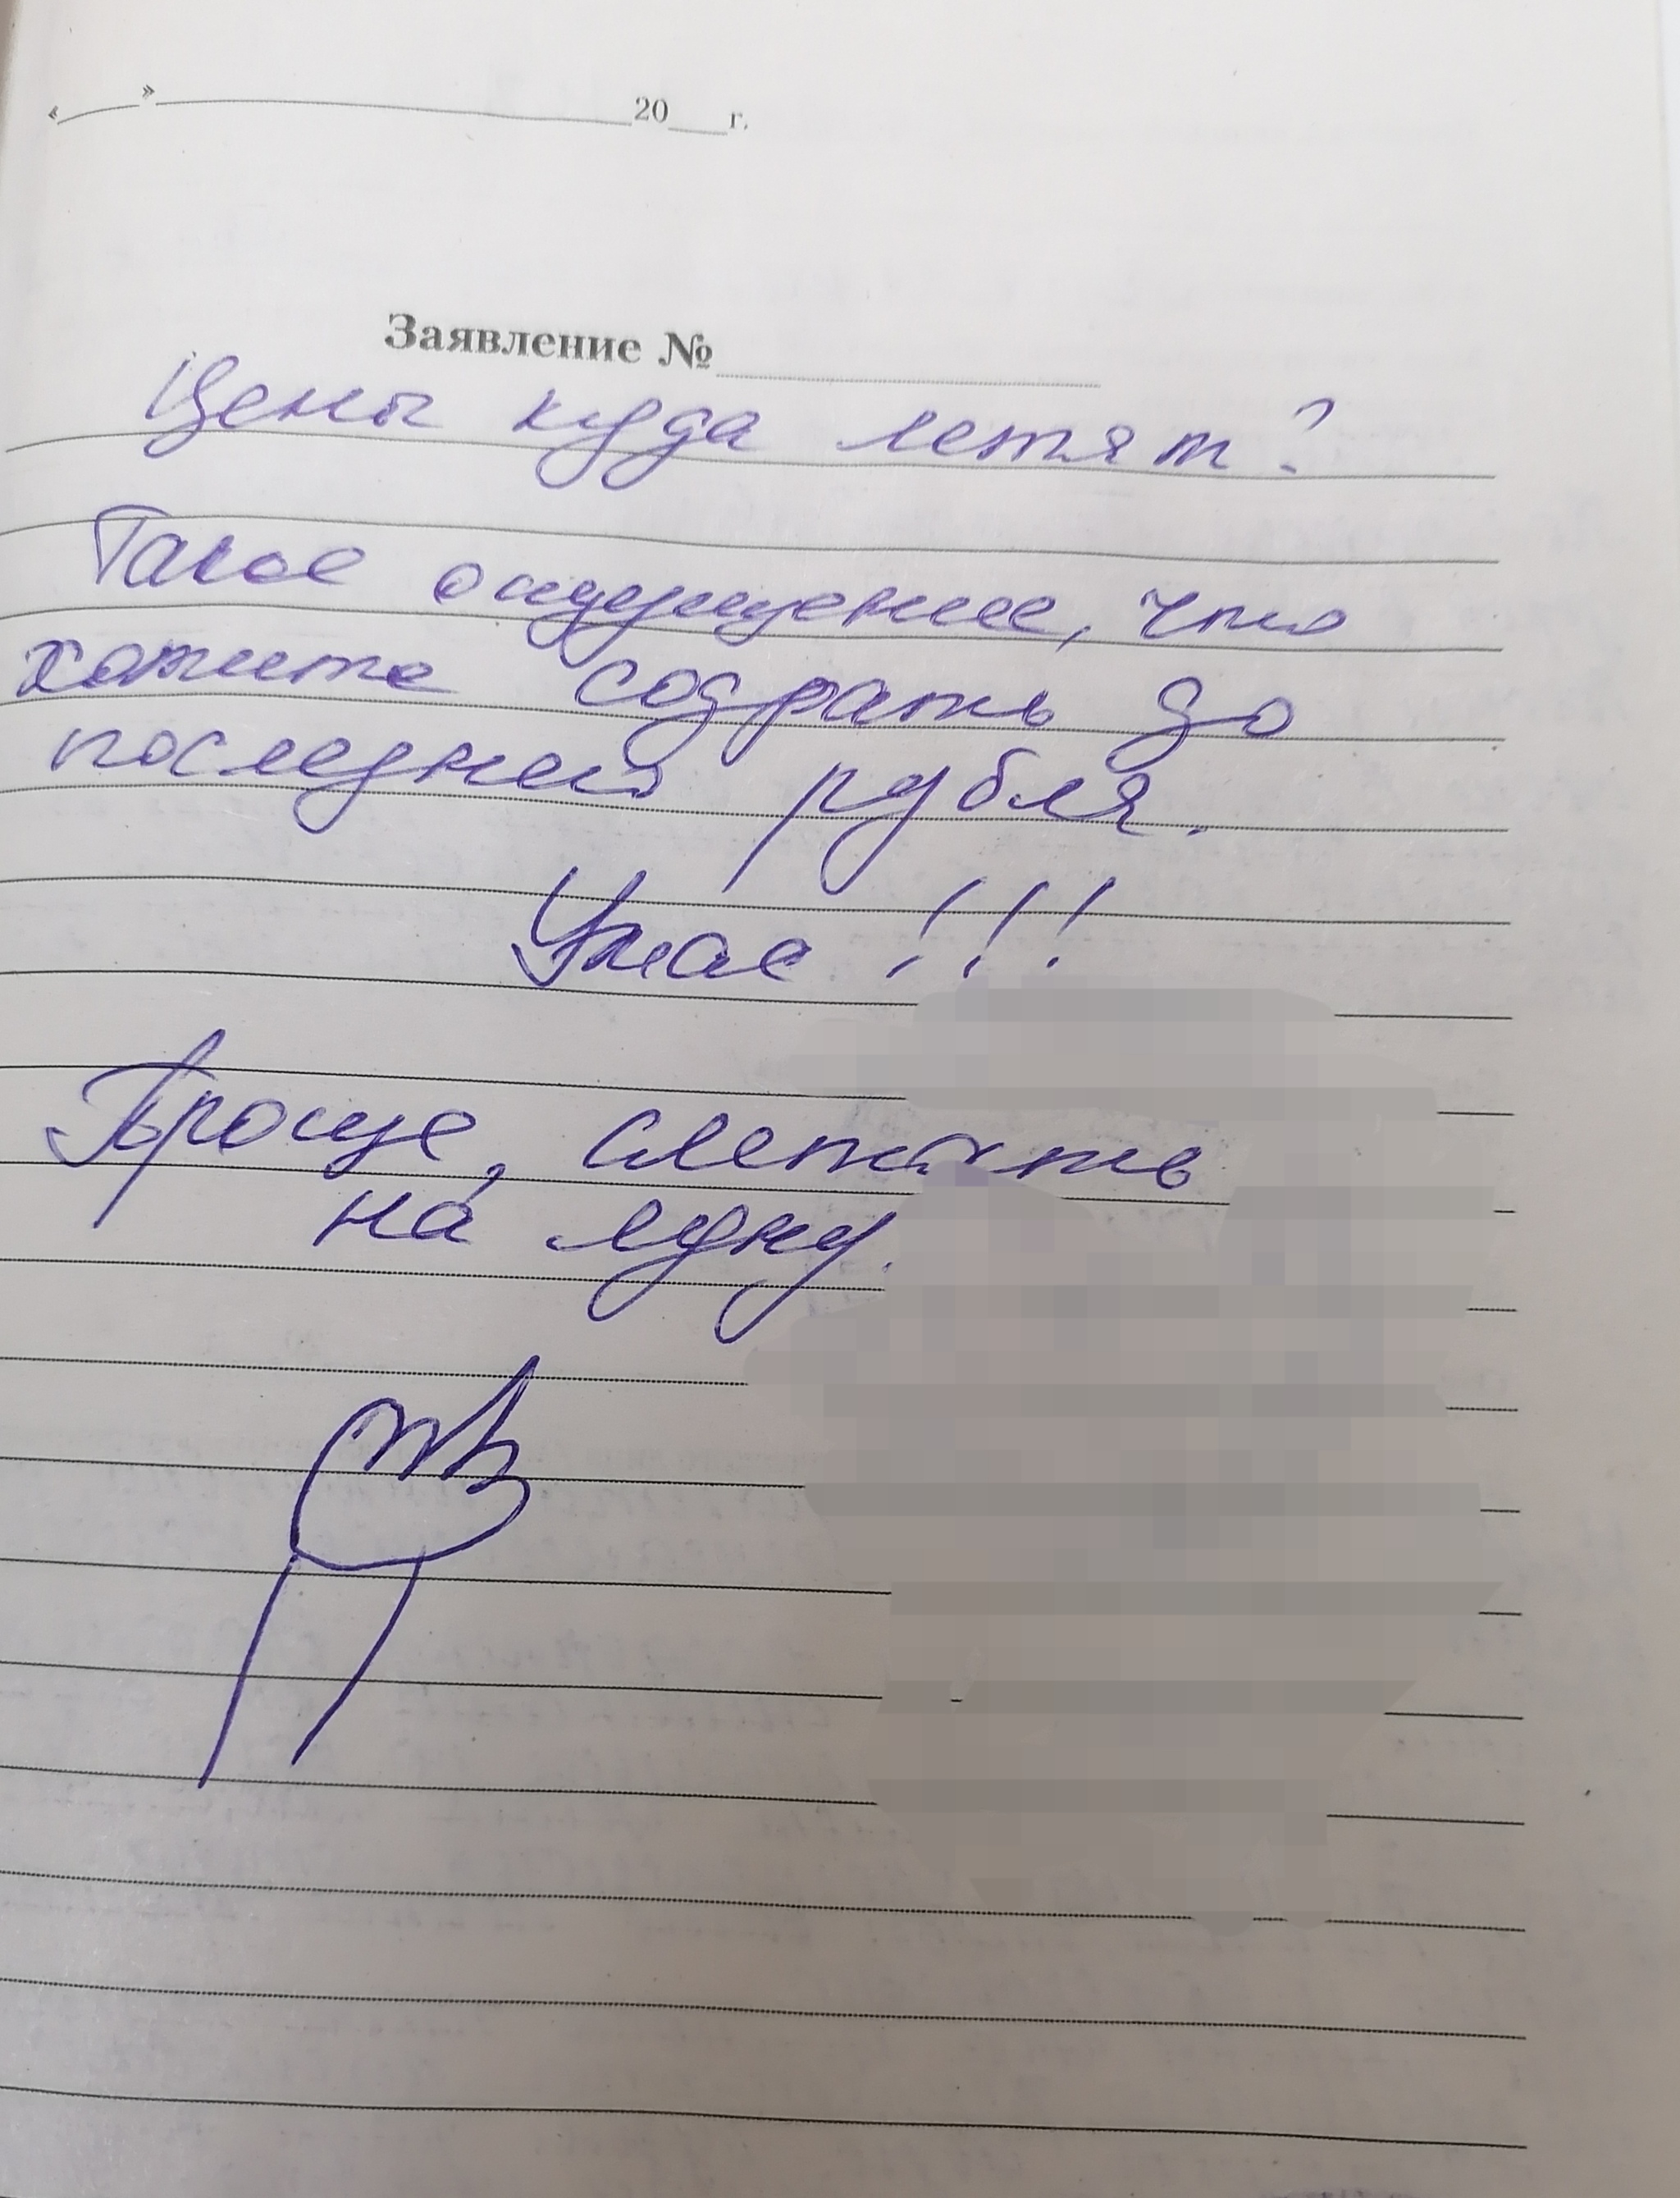 «___»____________20___г.
Заявление №
Цены куда летят?
Такое ощущение, что
хотите содрать до
последнего рубля.
Ужас!!!
Проще, слетать
на луну.